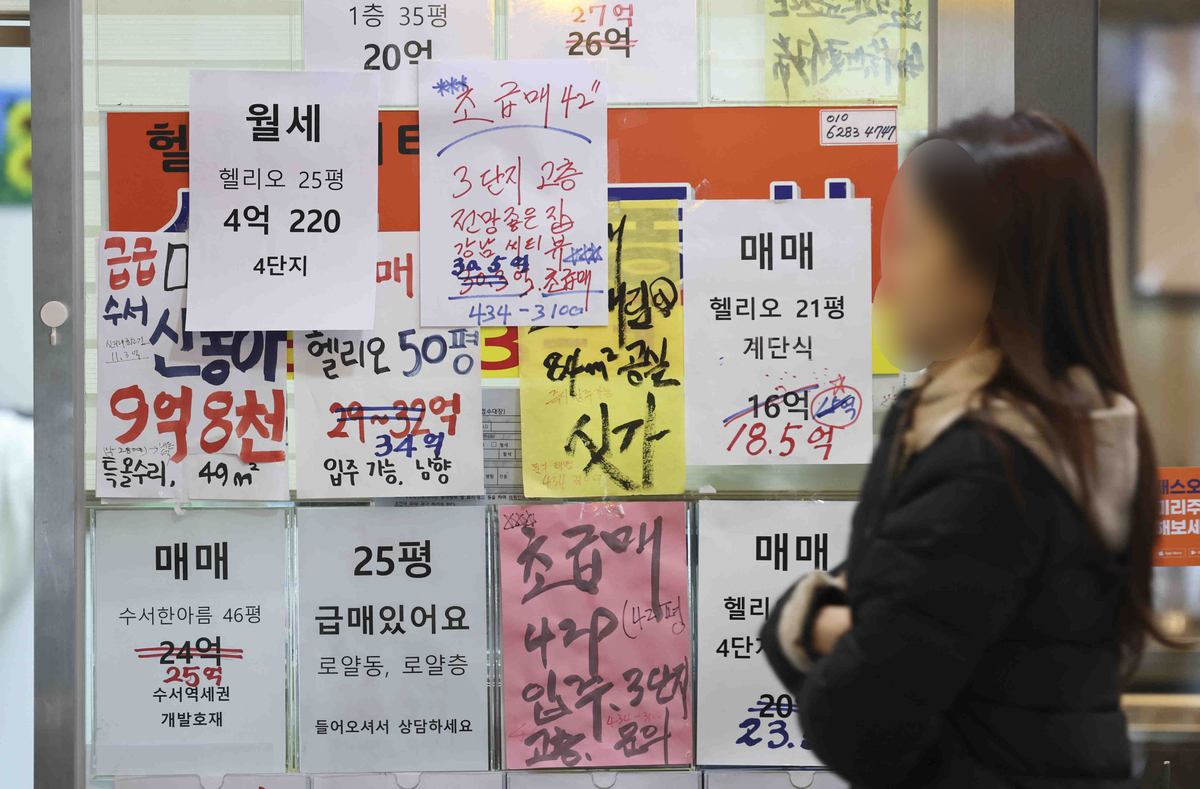 1층 35평
20억
27억
26억
010
6283 4747
월세
헬리오 25평
4억 220
4단지
초급매 42"
3단지 고층
전망좋은 집
강남 씨티뷰
30.5억
초급매
434-3100
매매
헬리오 21평
계단식
16억
18.5억
급급
수서
신동아
9억8천
특올수리, 49m²
매
헬리오 50평
29~32억
34억
입주 가능, 남향
84m² 공실
싯가
매매
수서한아름 46평
24억
25억
수서역세권
개발호재
25평
급매있어요
로얄동, 로얄층
들어오셔서 상담하세요
초급매
42P (42평
입주. 3단지
고층. 문의
매매
헬리
4단지
20
23.